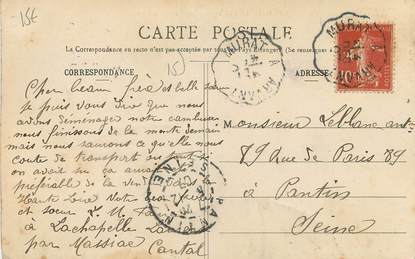 15€
CARTE POSTALE
La Correspondance au recto n'est pas acceptée par tous les pays Étrangers (Se renseigner à
CORRESPONDANCE
ADRESSE
15
MURAT A
ARVANT
MURAT A
ARVANT
Cher beau frère et belle sœur
je puis vous dire que nous
avons déménagé notre
nous finissons de la monté demain
mais nous saurons ce qu'elle nous
coute de transport
on aurait
préférable de la
Haute Loire Votre frère
et sœur L. U.
à Lachapelle Laurent
par Massiac
Cantal
Monsieur Leblanc
89 Rue de Paris 89
à
Pantin
Seine
PANTIN
SEINE